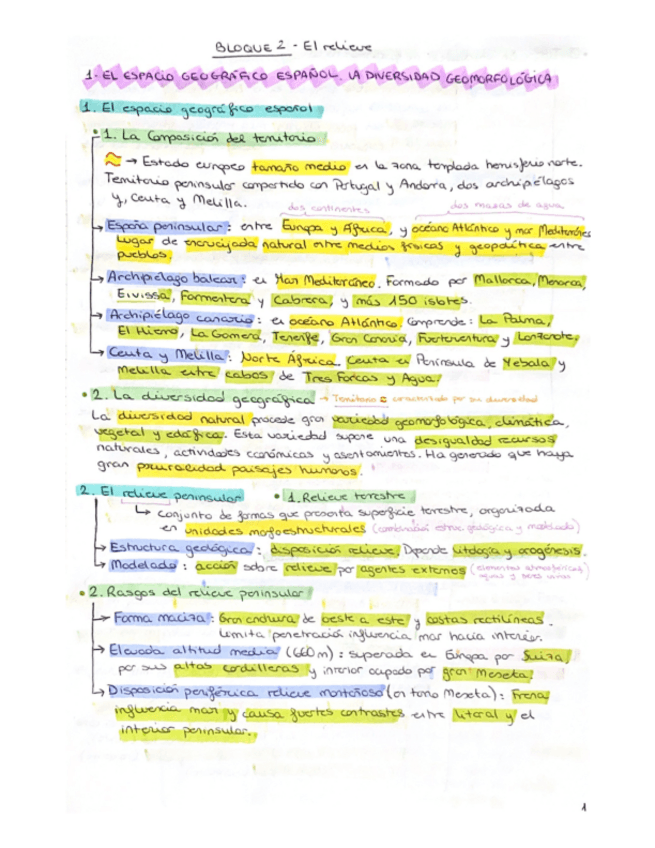 BLOQUE 2 - El relieve
1. EL ESPACIO GEOGRÁFICO ESPAÑOL. LA DIVERSIDAD GEOMORFOLÓGICA
1. El espacio geográfico español
• 1. La Composición del territorio
→ Estado europeo tamaño medio en la zona templada hemisferio norte.
Territorio peninsular compartido con Portugal y Andorra, dos archipélagos
y, Ceuta y Melilla.
dos continentes dos masas de agua
→ España peninsular: entre Europa y África, y océano Atlántico y mar Mediterráneo
Lugar de encrucijada natural entre medios físicos y geopolítica entre
pueblos.
→ Archipiélago balear: en Mar Mediterráneo. Formado por Mallorca, Menorca,
Eivissa, Formentera y Cabrera, y más 150 islotes.
→ Archipiélago canario: en océano Atlántico. Comprende: La Palma,
El Hierro, La Gomera, Tenerife, Gran Canaria, Fuerteventura y Lanzarote.
→ Ceuta y Melilla: Norte África. Ceuta en Península de Yebala y
Melilla entre cabos de Tres Forcas y Agua.
• 2. La diversidad geográfica → Territorio caracterizado por su diversidad
La diversidad natural procede gran variedad geomorfológica, climática,
vegetal y edáfica. Esta variedad supone una desigualdad recursos
naturales, actividades económicas y asentamientos. Ha generado que haya
gran pluralidad paisajes humanos.
2. El relieve peninsular • 1. Relieve terrestre
↳ conjunto de formas que presenta superficie terrestre, organizada
en unidades mofoestructurales (combinación estruc. geológica y modelado)
→ Estructura geológica: disposición relieve. Depende litología y orogénesis.
→ Modelado: acción sobre relieve por agentes externos (elementos atmosféricos,
aguas y seres vivos)
• 2. Rasgos del relieve peninsular
→ Forma maciza: Gran anchura de oeste a este y costas rectilíneas.
Limita penetración influencia mar hacia interior.
→ Elevada altitud media (660 m): superada en Europa por Suiza,
por sus altas cordilleras y interior ocupado por gran Meseta.
→ Disposición periférica relieve montañoso (en torno Meseta): Frena
influencia mar y causa fuertes contrastes entre litoral y el
interior peninsular.
1